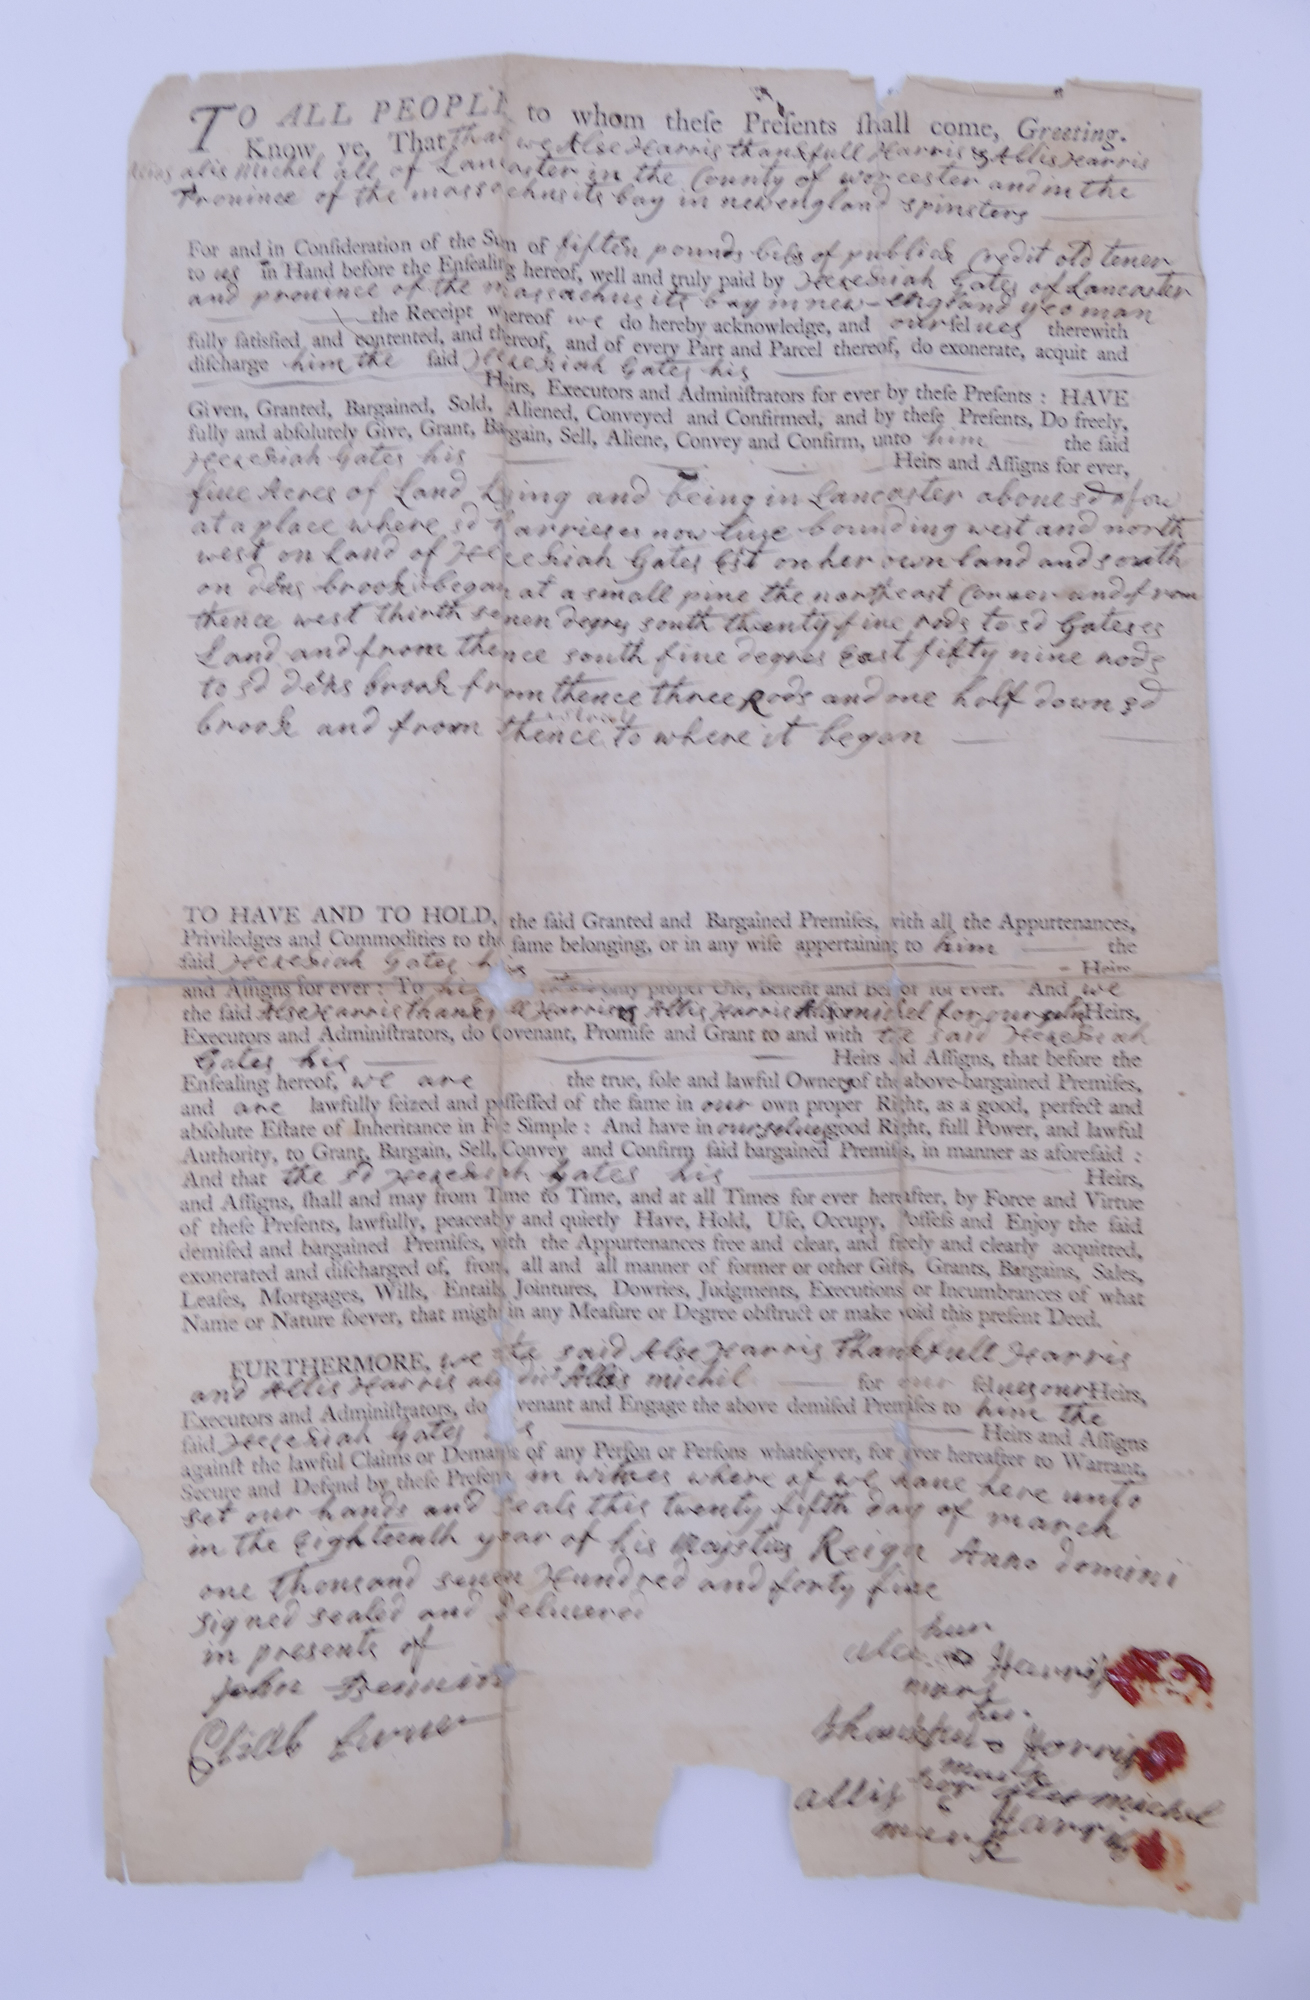 TO ALL PEOPLE to whom theſe Preſents ſhall come, Greeting.
Know ye, That that we Alse Harris thankfull Harris & Allis Harris
Alias alis Michel all of Lancaster in the County of worcester and in the
Prouince of the massachusits bay in newengland spinsters
For and in Conſideration of the Sum of fiften pounds bils of publick Credit old tener
to us in Hand before the Enſealing hereof, well and truly paid by Hezekiah Gates of Lancaster
and prouince of the massachusits bay in new-england yeoman
the Receipt whereof we do hereby acknowledge, and ourselues therewith
fully ſatisfied and contented, and thereof, and of every Part and Parcel thereof, do exonerate, acquit and
diſcharge him the ſaid Hezekiah Gates his
Heirs, Executors and Adminiſtrators for ever by theſe Preſents : HAVE
Given, Granted, Bargained, Sold, Aliened, Conveyed and Confirmed, and by theſe Preſents, Do freely,
fully and abſolutely Give, Grant, Bargain, Sell, Aliene, Convey and Confirm, unto him the ſaid
Hezekiah Gates his Heirs and Aſſigns for ever,
fiue Acres of Land Lying and being in Lancaster aboue sd
at a place where sd Harrises now liue bounding west and north
west on Land of Hezekiah Gates Est on her own land and south
on brook began at a small pine the northeast Corner and from
thence west thirth seuen degres south twenty fiue rods to sd Gateses
Land and from thence south fiue degres East fifty nine rods
to sd brook from thence three Rods and one half down sd
brook and from thence to where it began
TO HAVE AND TO HOLD, the ſaid Granted and Bargained Premiſes, with all the Appurtenances,
Priviledges and Commodities to the ſame belonging, or in any wiſe appertaining to him the
ſaid Hezekiah Gates his Heirs
and Aſſigns for ever : To his only proper Uſe, Benefit and Behoof for ever. And we
the ſaid Alse Harris thankfull Harris & Allis Harris Alis michel for our selus Heirs,
Executors and Adminiſtrators, do Covenant, Promiſe and Grant to and with the said Hezekiah
Gates his Heirs and Aſſigns, that before the
Enſealing hereof, we are the true, ſole and lawful Owners of the above-bargained Premiſes,
and are lawfully ſeized and poſſeſſed of the ſame in our own proper Right, as a good, perfect and
abſolute Eſtate of Inheritance in Fee Simple : And have in ourselues good Right, full Power, and lawful
Authority, to Grant, Bargain, Sell, Convey and Confirm ſaid bargained Premiſes, in manner as aforeſaid :
And that the sd Hezekiah Gates his Heirs,
and Aſſigns, ſhall and may from Time to Time, and at all Times for ever hereafter, by Force and Virtue
of theſe Preſents, lawfully, peaceably and quietly Have, Hold, Uſe, Occupy, Poſſeſs and Enjoy the ſaid
demiſed and bargained Premiſes, with the Appurtenances free and clear, and freely and clearly acquitted,
exonerated and diſcharged of, from, all and all manner of former or other Gifts, Grants, Bargains, Sales,
Leaſes, Mortgages, Wills, Entails, Jointures, Dowries, Judgments, Executions or Incumbrances of what
Name or Nature ſoever, that might in any Meaſure or Degree obſtruct or make void this preſent Deed.
FURTHERMORE, we the said Alse Harris Thankfull Harris
and Allis Harris Allis michil for our selues our Heirs,
Executors and Adminiſtrators, do Covenant and Engage the above demiſed Premiſes to him the
ſaid Hezekiah Gates his Heirs and Aſſigns
againſt the lawful Claims or Demands of any Perſon or Perſons whatſoever, for ever hereafter to Warrant,
Secure and Defend by theſe Preſents in witnes where of we haue here unto
set our hands and seals this twenty fifth day of march
in the Eighteenth year of his Majestius Reign Anno domini
one Thousand seuen Hundred and forty fiue
signed sealed and Deliuered
in presents of
John Bennin
her
Harris
mark
her
Harris
mark
her alies michel
allis Harris
mark